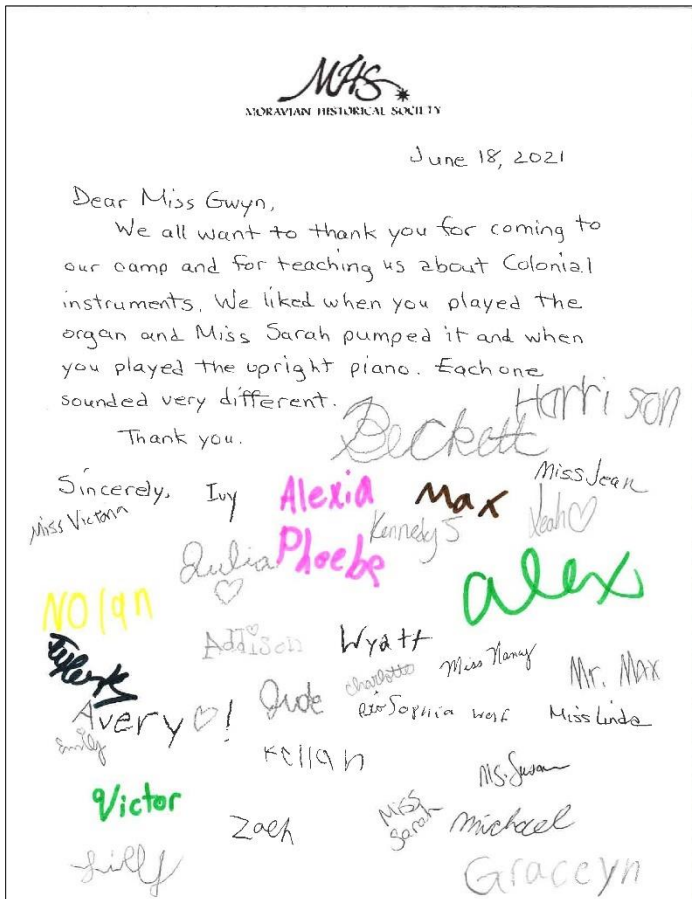 MHS
MORAVIAN HISTORICAL SOCIETY
June 18, 2021
Dear Miss Gwyn,
We all want to thank you for coming to
our camp and for teaching us about Colonial
instruments. We liked when you played the
organ and Miss Sarah pumped it and when
you played the upright piano. Each one
sounded very different.
Harrison
Beckett
Thank you.
Sincerely, Ivy Alexia Max Miss Jean
Miss Victoria Kennedy S Leah♡
Julia♡ Phoebe
Alex
Nolan
Addison Wyatt
Miss Nancy Mr. Max
Avery♡! Jude Charlotte
Sophia West Miss Linda
Emily
Kellan
Ms. Susan
Victor
Zach Miss Sarah Michael
Lilly
Graceyn